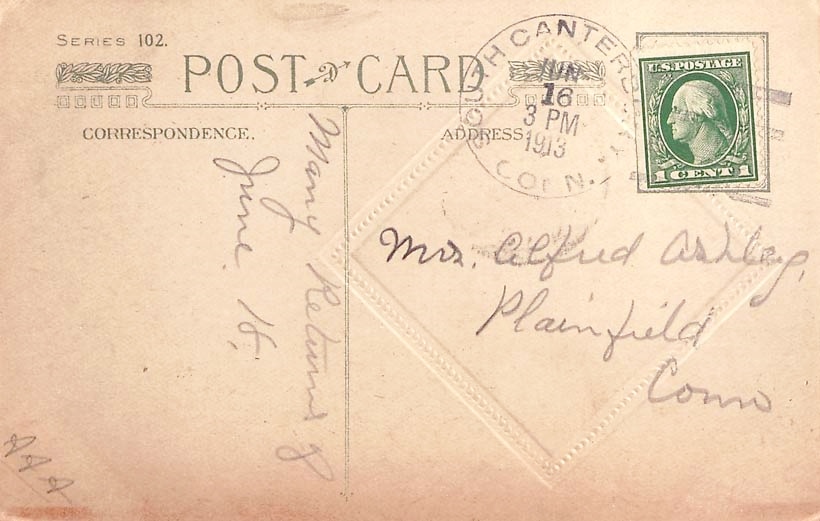 SERIES 102.
POST CARD
CORRESPONDENCE.
ADDRESS
SOUTH CANTERBURY.
JUN
16
3 PM
1913
CONN.
U.S. POSTAGE
1 CENT 1
Many Returns of
June
Mrs. Alfred Ashley,
Plainfield
Conn